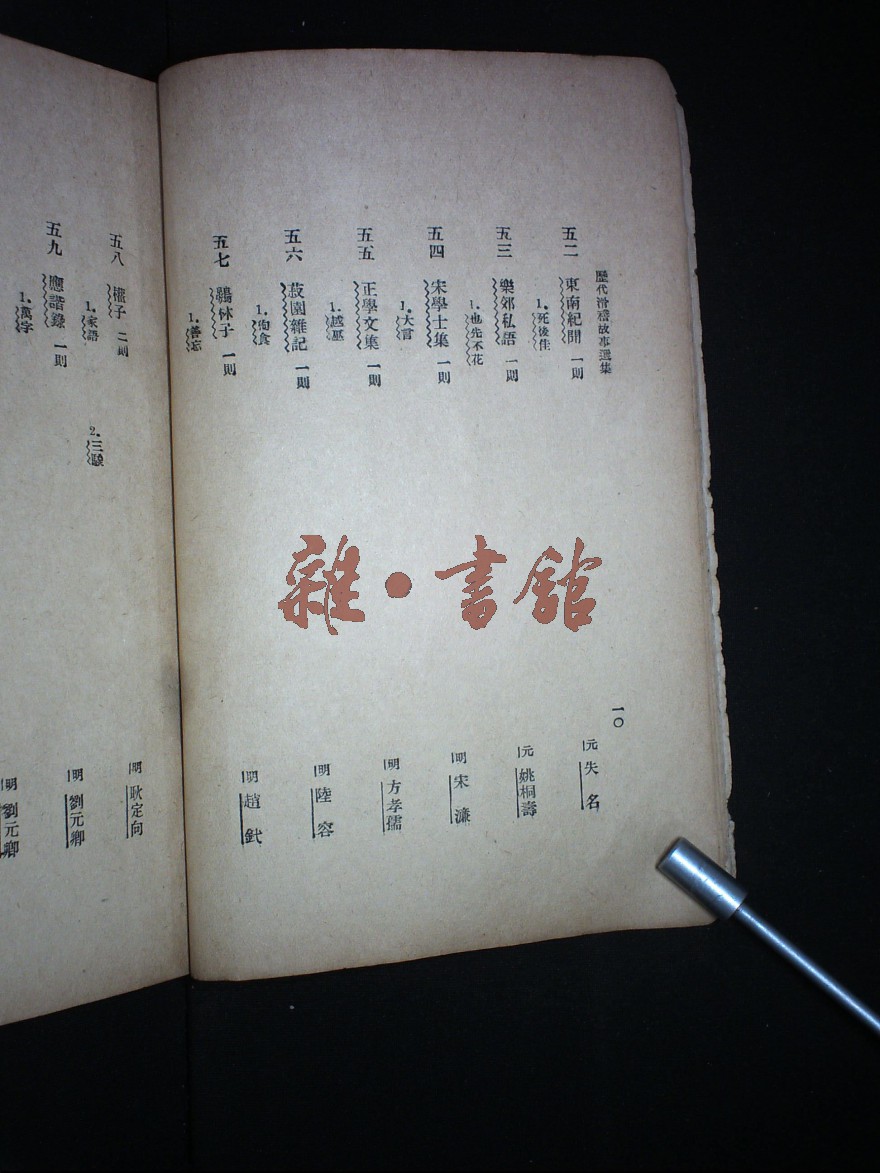 歷代滑稽故事選集
一〇
五二 東南紀聞 一則 元 失名
1.死後佳
五三 樂郊私語 一則 元 姚桐壽
1.也先不花
五四 宋學士集 一則 明 宋濂
1.大言
五五 正學文集 一則 明 方孝孺
1.越巫
五六 菽園雜記 一則 明 陸容
1.狥食
五七 鶡林子 一則 明 趙釴
1.善忘
五八 權子 二則 明 耿定向
1.家語 2.三駿
五九 應諧錄 一則 明 劉元卿
1.萬字
明 劉元卿
雜·書館